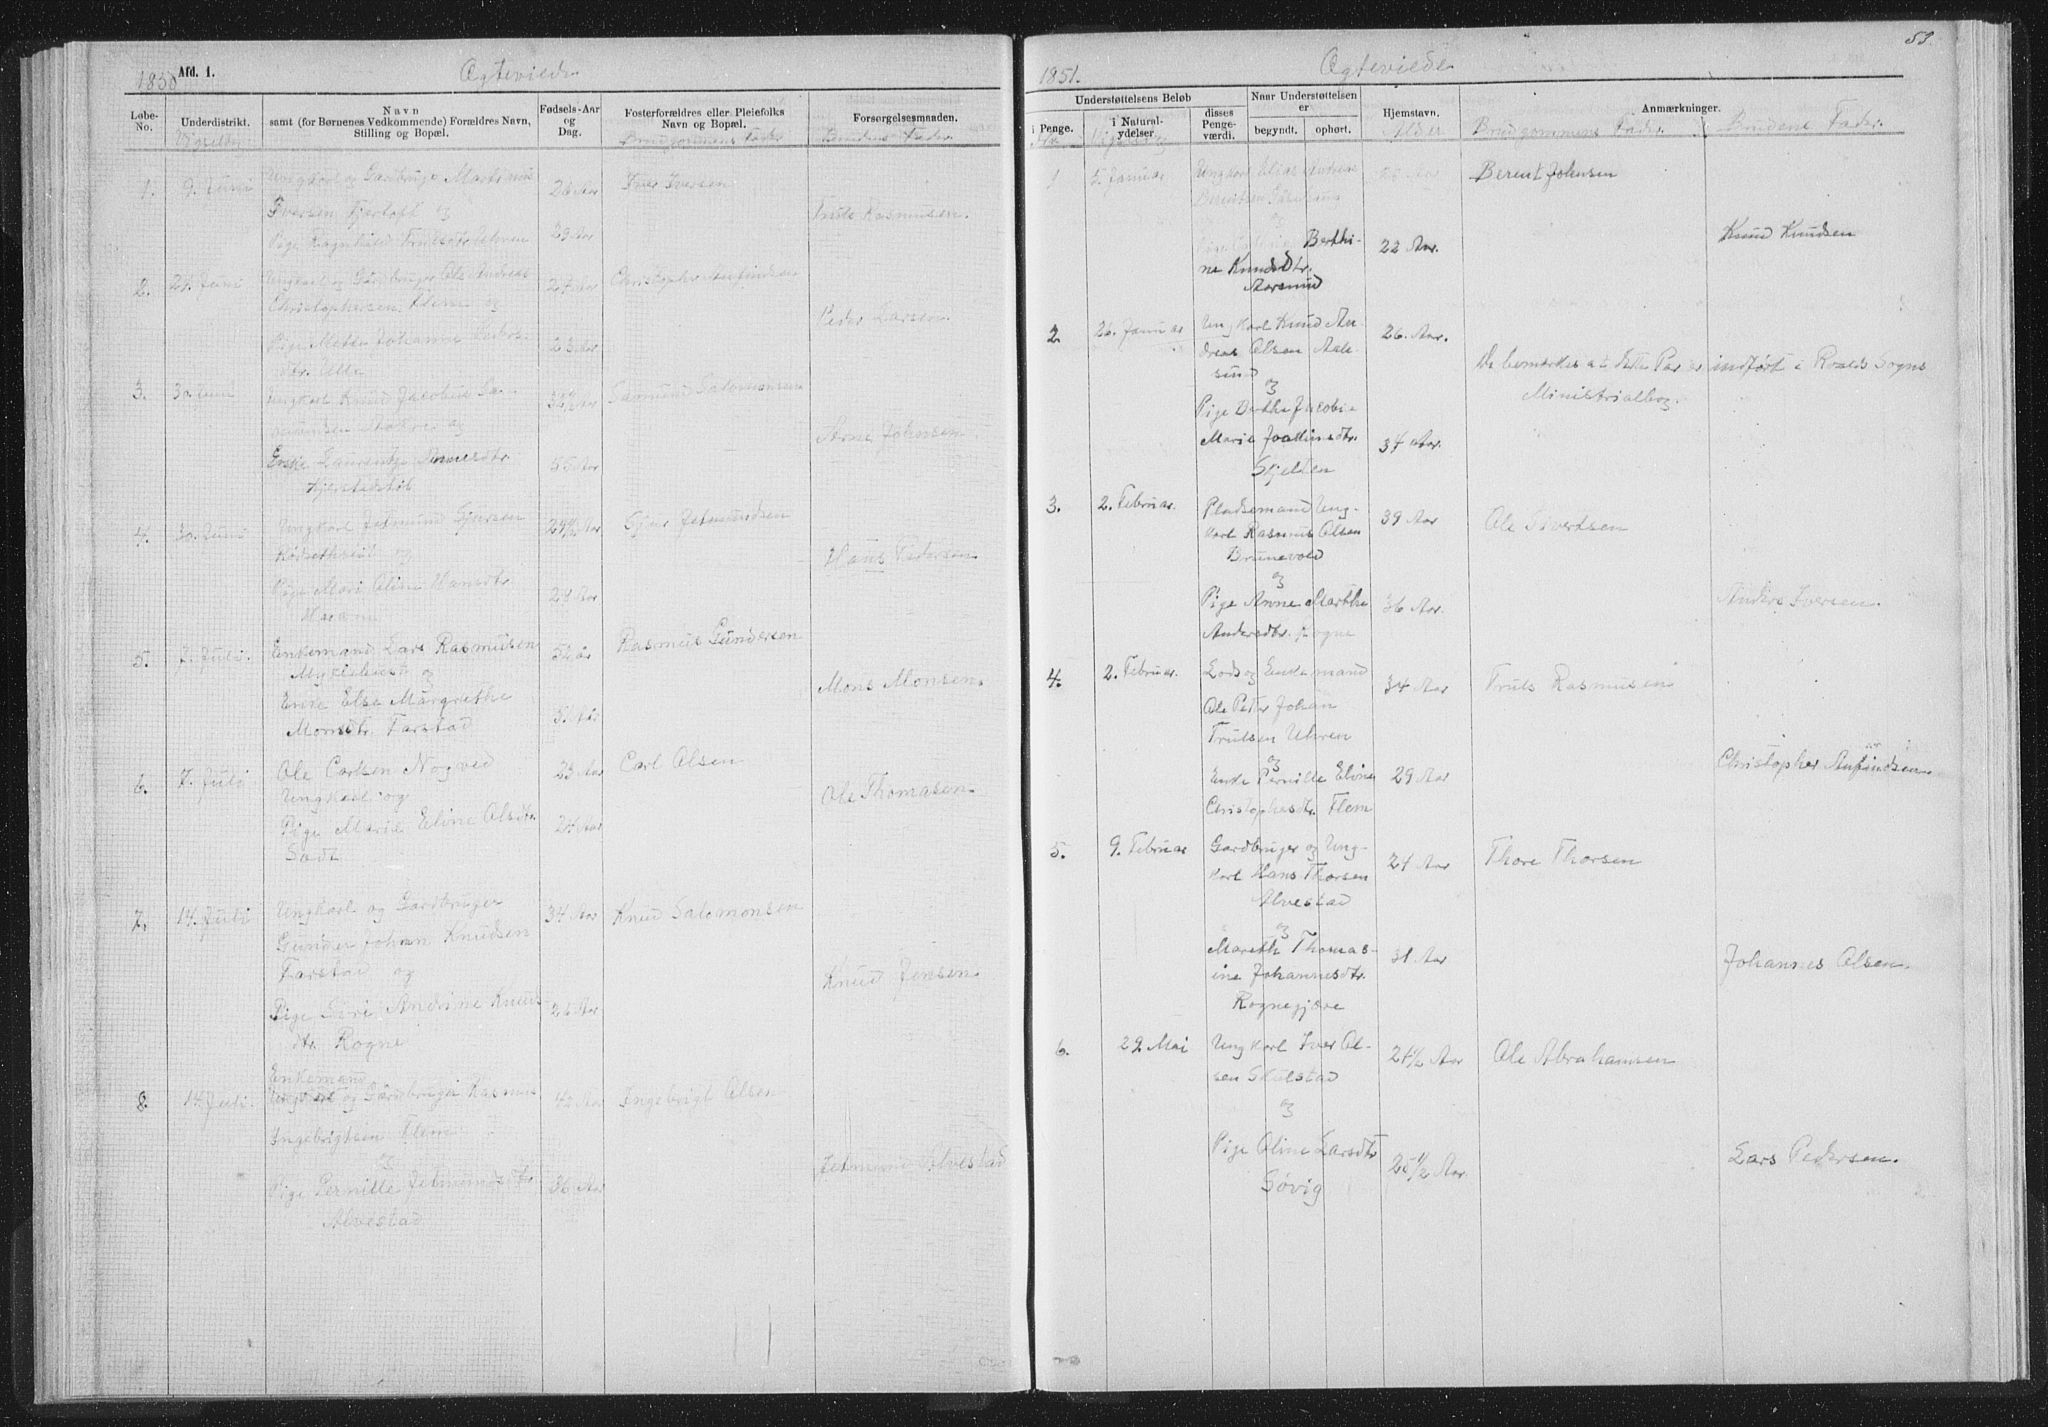 1850
Afd. 1.
Ægteviede
Løbe-
No.
Underdistrikt.
Navn
samt (for Børnenes Vedkommende) Forældres Navn,
Stilling og Bopæl.
Fødsels-Aar
og
Dag.
Fosterforældres eller Pleiefolks
Navn og Bopæl.
Forsorgelsesmaaden.
Brudgommens Fader
Brudens Fader
1. 9. Juni Ungkarl og Gardbruger
Iversen Fjertoft og
Pige Ragnhild Trulsdtr. Uhren
Iver Iversen
Truls Rasmussen.
2. 24. Juni Ungkarl og Gardbruger Ole Andreas
Christophersen Flem og
Pige Mette Johanne Peders-
dtr. Ulla
27 Aar
23 Aar
Christopher Anfindsen
Peder Larsen.
3. 30. Juni Ungkarl Knud Jacobus Sa-
og
Enke Laurentze Arnesdtr.
55 Aar
Samund Salomonsen
Arne Johnsen
4. 30. Juni Ungkarl Jetmund Sjursen
og
Pige Mari Oline Hansdtr.
24 Aar
Sjur Jetmundsen
Hans Pedersen
5. 7. Juli. Enkemand Lars Rasmusen
Myclebust og
Enke Else Margrethe
Monsdtr. Farstad
52 Aar
51 Aar
Rasmus Gundersen
Mons Monsen.
6. 7. Juli Ole Carlsen Nogved
Ungkarl og
Pige Marie Elvine Olsdtr.
23 Aar
24 Aar
Carl Olsen
Ole Thomasen.
7. 14. Juli Ungkarl og Gardbruger
Gunder Johan Knudsen
Farstad og
Pige Siri Andrine Knuds-
dtr. Rogne
34 Aar
26 Aar
Knud Salomonsen
Knud Jensen.
8 14. Juli. Enkemand
Ungkarl og Gardbruger Rasmus
Ingebrigtsen Flem
og
Pige Pernille Jetmundsdtr.
Alvestad
42 Aar
36 Aar
Ingebrigt Olsen
Jetmund Alvestad
1851.
Ægteviede
53.
Understøttelsens Beløb
i Penge.
i Natural-
ydelser.
disses
Penge-
værdi.
Naar Understøttelsen
er
begyndt.
ophørt.
Hjemstavn.
Anmærkninger.
Alder
Brudgommens Fader.
Brudens Fader.
1 5. Januar Ungkarl Elias Andreas
Berentsen
og
Berthi-
ne Knudsdtr.
Aarsund
22 Aar.
Berent Johnsen
Knud Knudsen
2. 26. Januar Ungkarl Knud An-
dreas Olsen Aale-
sund
og
Pige Berthe Jacobie
Marie Joakimsdtr.
Skjelten
26. Aar.
34 Aar.
De bemærkes at dette Par er indført i Roalds Sogns
Ministrialbog.
3. 2. Februar. Pladsemand Ung-
karl Rasmus Olsen
Brunevold
og
Pige Anne Marthe
Andersdtr. Rogne
39 Aar
36 Aar.
Ole Sivertsen
Anders Iversen.
4. 2. Februar. Lods og Enkemand
Ole Peter Johan
Trulsen Uhren
og
Enke Pernille Elvine
Christophersdtr. Flem
34 Aar
29 Aar
Truls Rasmusen
Christopher Anfindsen
5. 9. Februar Gardbruger og Ung-
karl Hans Thorsen
Alvestad
og
Mareth Thomas-
ine Johannesdtr.
Rognegjære
24 Aar
31 Aar
Thore Thorsen
Johannes Olsen.
6. 29. Mai Ungkarl Iver Ol-
sen Skulstad
og
Pige Oline Larsdtr.
Søvig
24 1/2 Aar
25 1/2 Aar.
Ole Abrahamsen
Lars Pedersen.